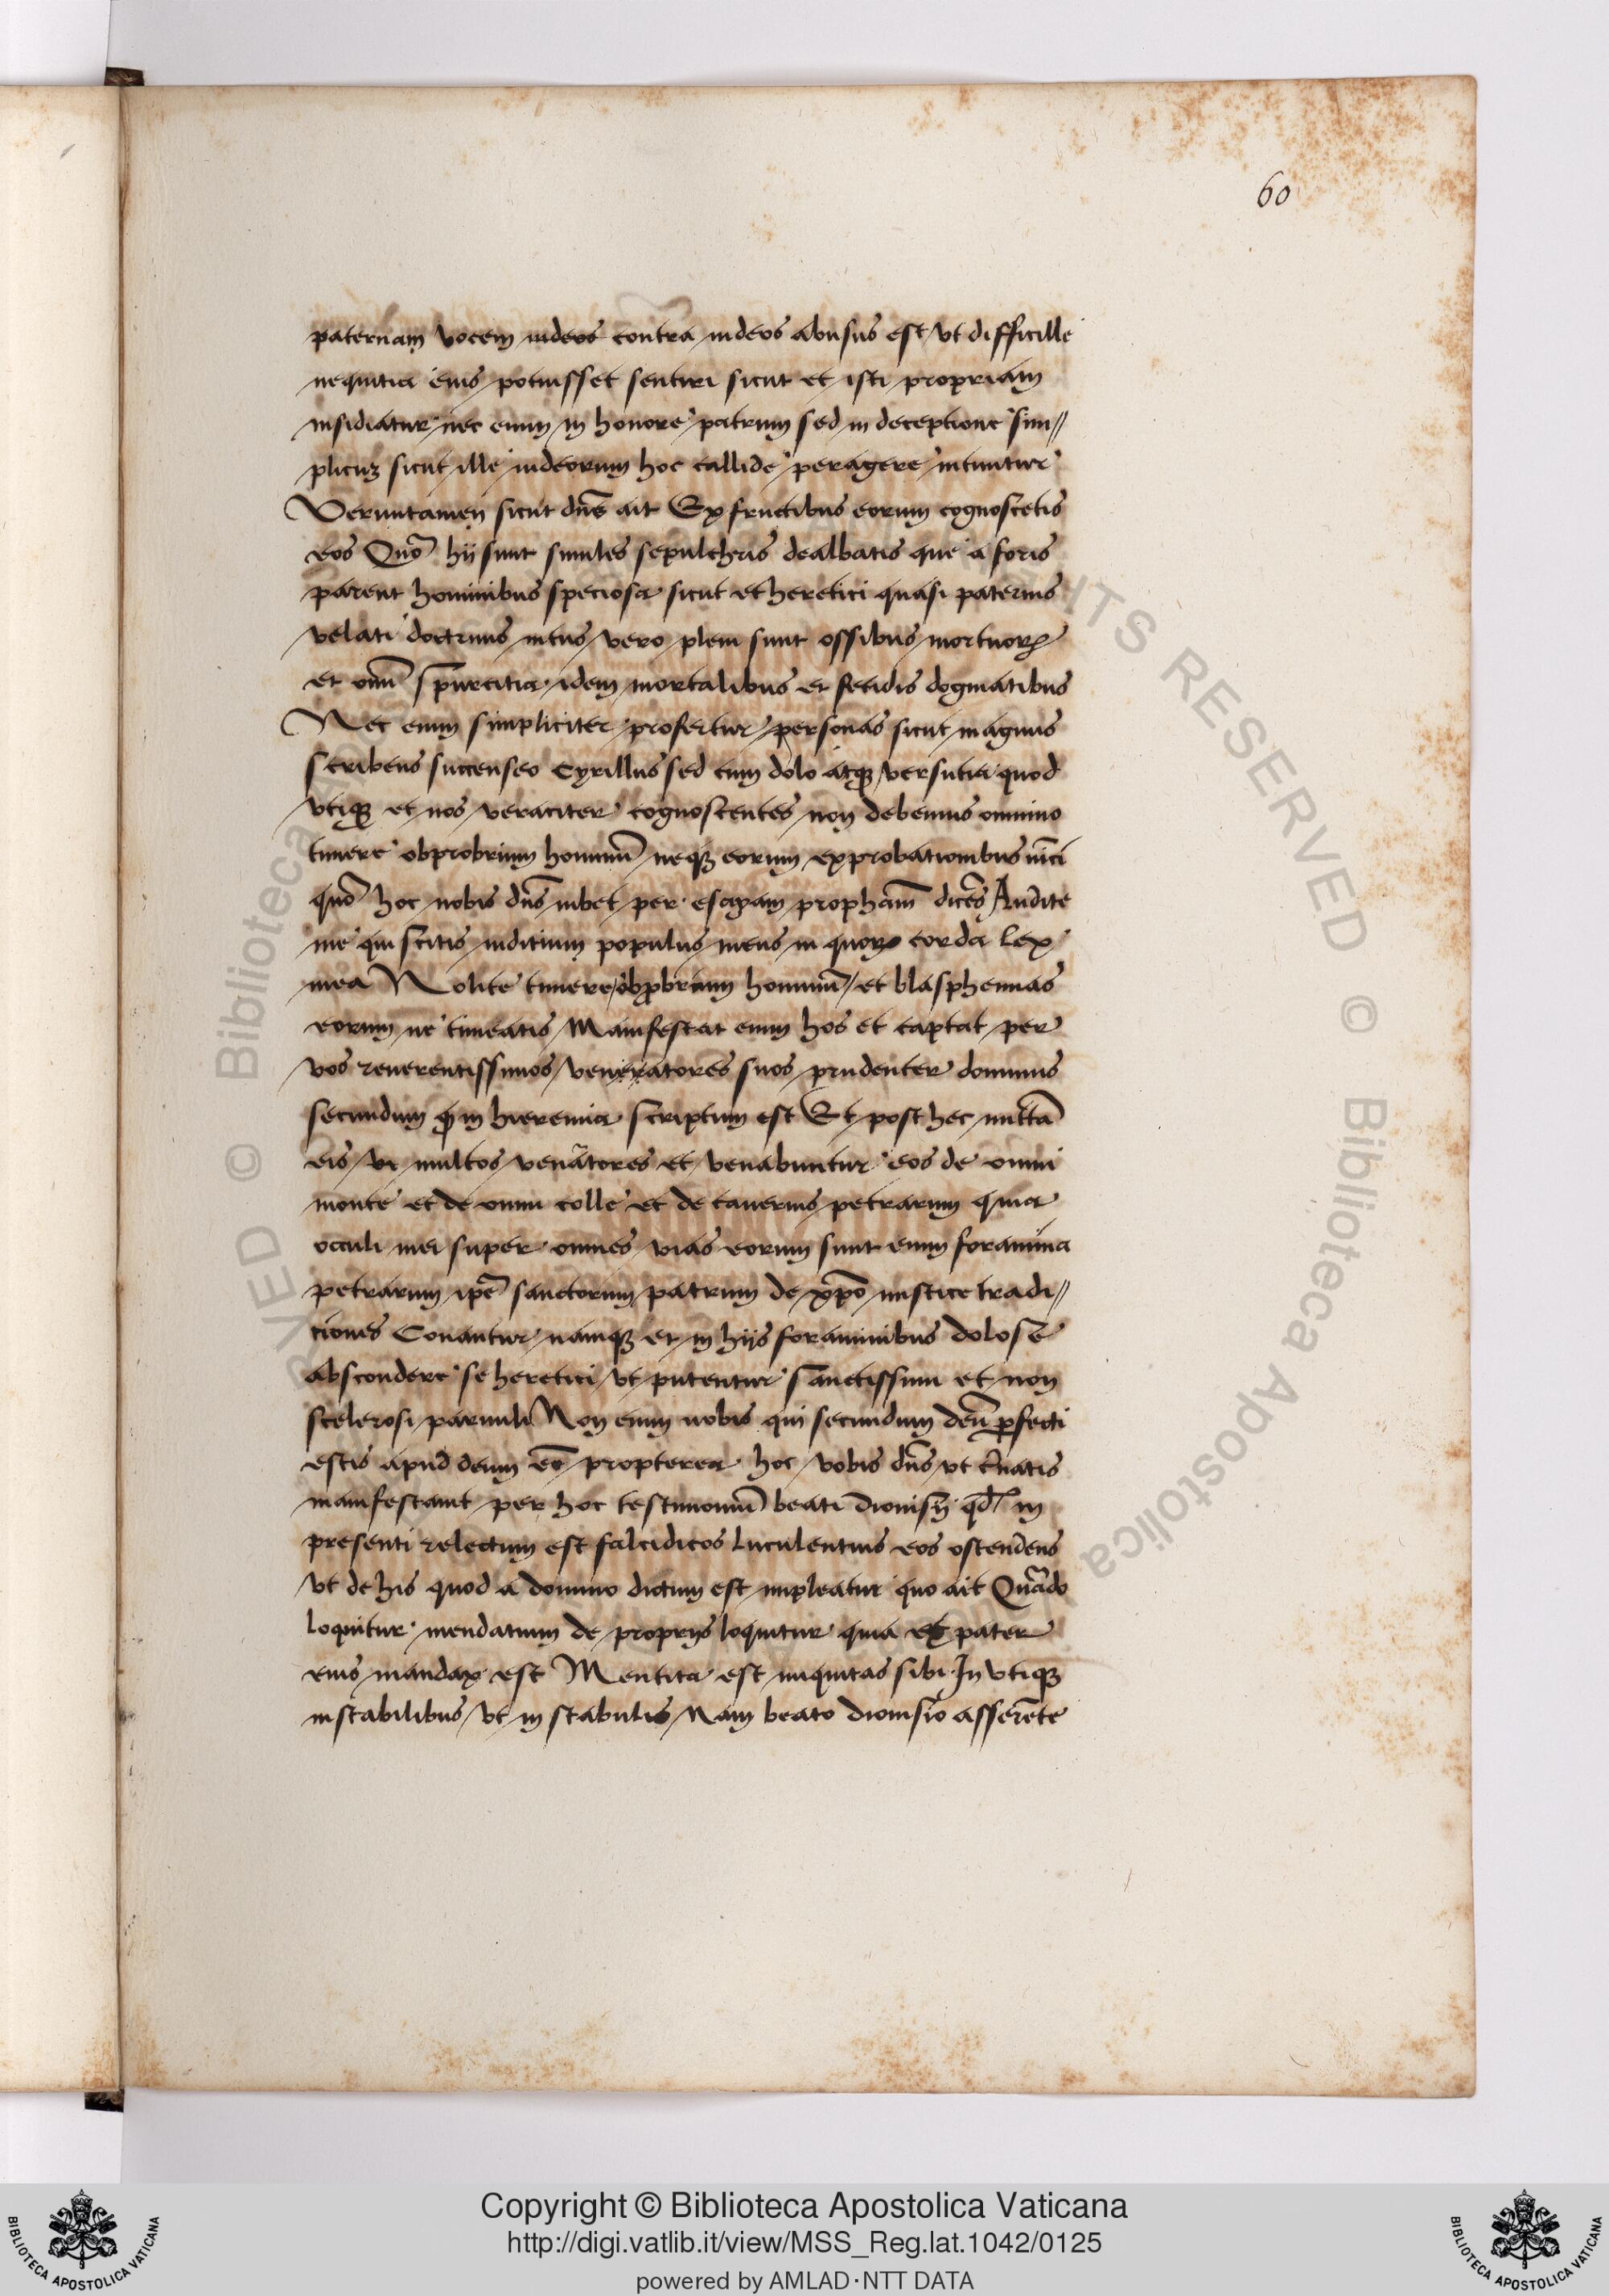 60
paternam vocem iudeos contra iudeos abusus est vt difficille
nequitia eius potuisset sentiri sicut et isti propriam
insidiatur nec enim in honore patrum sed in deceptione sim//
plicium sicut ille iudeorum hoc callide peragere
Veruntamen sicut dns̄ ait Ex fructibus eorum cognoscetis
eos Quō hij sunt similes sepulchris dealbatis que a foris
parent hominibus speciosa sicut et heretici quasi paternis
velati doctrinis intus vero pleni sunt ossibus mortuoꝝ
et omī spurcitia idem mortalibus et fetidis dogmatibus
Nec enim simpliciter profertur personas sicut magnus
scribens succenseo Cyrillus sed cum dolo atqꝫ versutia quod
vtiqꝫ et nos veraciter cognoscentes non debemus omnino
timere obprobrium hominū neqꝫ eorum exprobationibus vīci
quō hoc nobis dn̄s iubet per esayam prophām dicēs Audite
me qui scitis iuditium populus meus in quoꝝ corda lex
mea Nolite timere obprobrium hominū et blasphemias
eorum ne timeatis Manifestat enim hos et captat per
vos reuerentissimos veneratores suos prudenter dominus
secundum in hieremia scriptum est Et post hec mittā
eis multos venatores et venabuntur eos de omni
monte et de omni colle et de cauernis petrarum quia
occuli mei super omnes vias eorum sunt enim foramina
petrarum ipē sanctorum patrum de xpō mistice tradi//
tiones Conantur namqꝫ et in hijs foraminibus dolose
abscondere se heretici vt putentur sanctissimi et non
scelerosi paruuli Non enim nobis qui secundum deū ꝑfecti
estis apud deum propterea hoc vobis dn̄s vt
manifestauit per hoc testimoniū beati dionisij qd̄ in
presenti relectum est falcidicos luculentius eos ostendens
vt de his quod a domino dictum est impleatur quo ait Quādo
loquitur mendatium de proprijs loquitur quia et pater
eius mandax est Mentita est iniquitas sibi In vtiqꝫ
instabilibus vt in stabulis Nam beato dionisio asserēte
ITS RESERVED © Biblioteca Apostolica
RVED © Biblioteca
Copyright © Biblioteca Apostolica Vaticana
http://digi.vatlib.it/view/MSS_Reg.lat.1042/0125
powered by AMLAD·NTT DATA
BIBLIOTECA APOSTOLICA VATICANA
BIBLIOTECA APOSTOLICA VATICANA